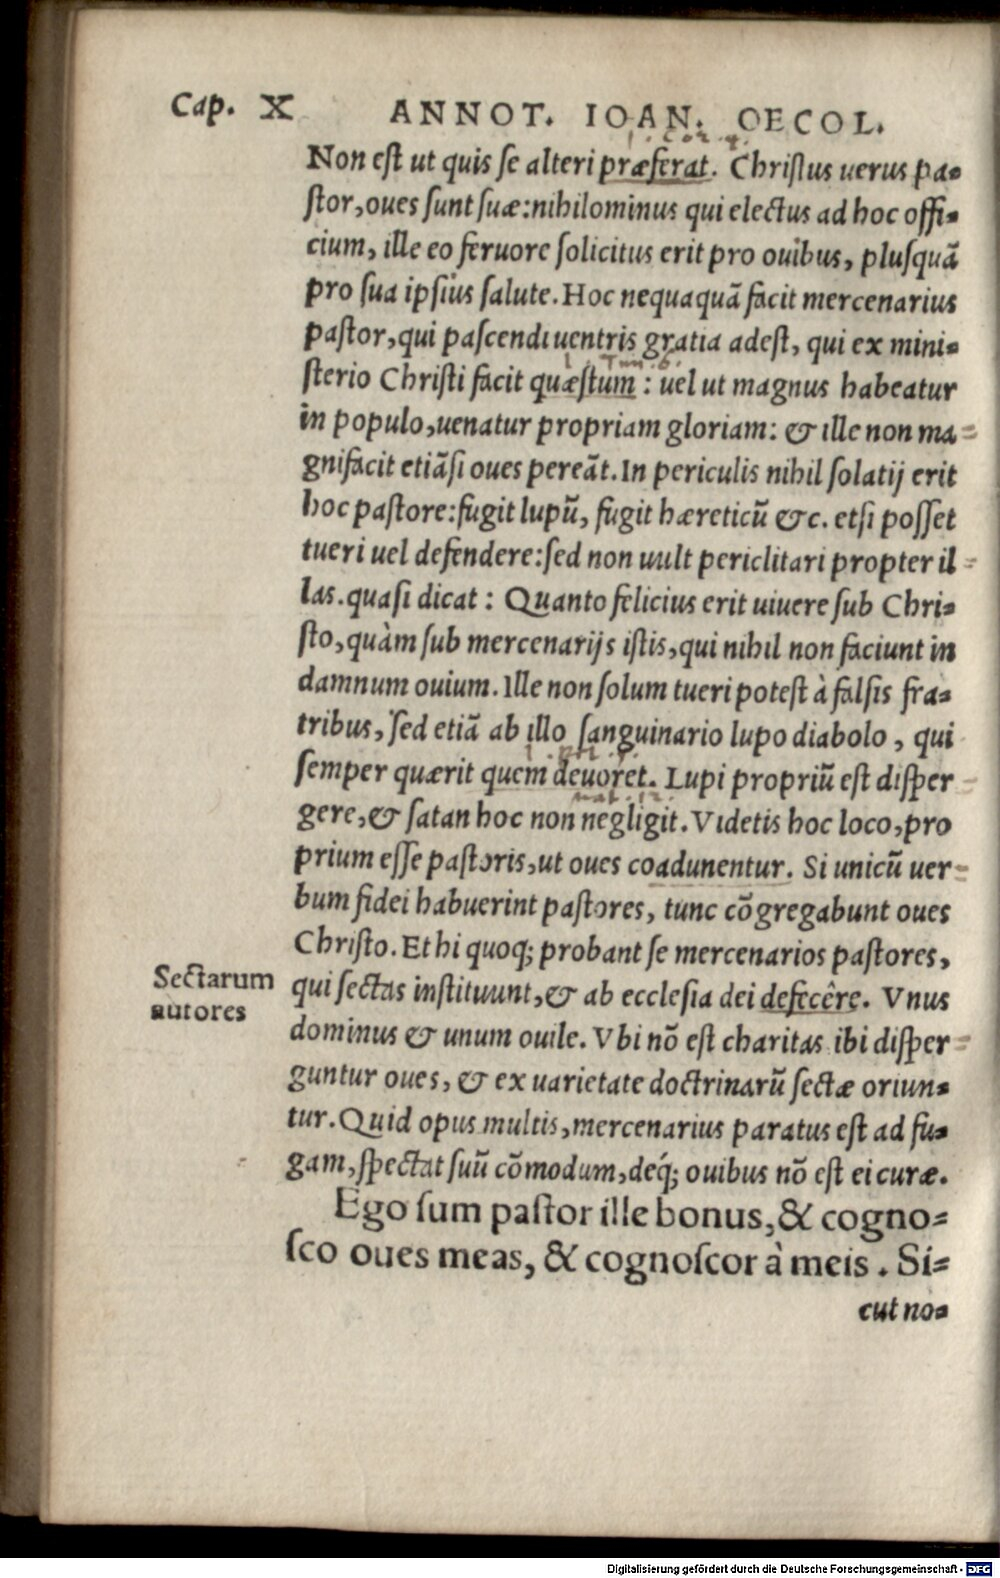 Cap. X ANNOT. IOAN. OECOL.
1. Cor. 4.
Non est ut quis se alteri præferat. Christus uerus pa-
stor, oues sunt suæ: nihilominus qui electus ad hoc offi-
cium, ille eo feruore solicitus erit pro ouibus, plusquã
pro sua ipsius salute. Hoc nequaquã facit mercenarius
pastor, qui pascendi uentris gratia adest, qui ex mini-
1. Tim. 6.
sterio Christi facit quæstum: uel ut magnus habeatur
in populo, uenatur propriam gloriam: & ille non ma-
gnifacit etiãsi oues pereãt. In periculis nihil solatij erit
hoc pastore: fugit lupũ, fugit hæreticũ &c. etsi posset
tueri uel defendere: sed non uult periclitari propter il-
las. quasi dicat: Quanto felicius erit uiuere sub Chri-
sto, quàm sub mercenarijs istis, qui nihil non faciunt in
damnum ouium. Ille non solum tueri potest à falsis fra-
tribus, sed etiã ab illo sanguinario lupo diabolo, qui
1. pet. 5.
semper quærit quem deuoret. Lupi propriũ est disper-
mat. 12.
gere, & satan hoc non negligit. Videtis hoc loco, pro
prium esse pastoris, ut oues coadunentur. Si unicũ uer-
bum fidei habuerint pastores, tunc cõgregabunt oues
Christo. Et hi quoq; probant se mercenarios pastores,
Sectarum
autores
qui sectas instituunt, & ab ecclesia dei defecêre. Vnus
dominus & unum ouile. Vbi nõ est charitas ibi disper-
guntur oues, & ex uarietate doctrinarũ sectæ oriun-
tur. Quid opus multis, mercenarius paratus est ad fu-
gam, spectat suũ cõmodum, deq́; ouibus nõ est ei curæ.
Ego sum pastor ille bonus, & cogno-
sco oues meas, & cognoscor à meis. Si-
cut no-
Digitalisierung gefördert durch die Deutsche Forschungsgemeinschaft - DFG